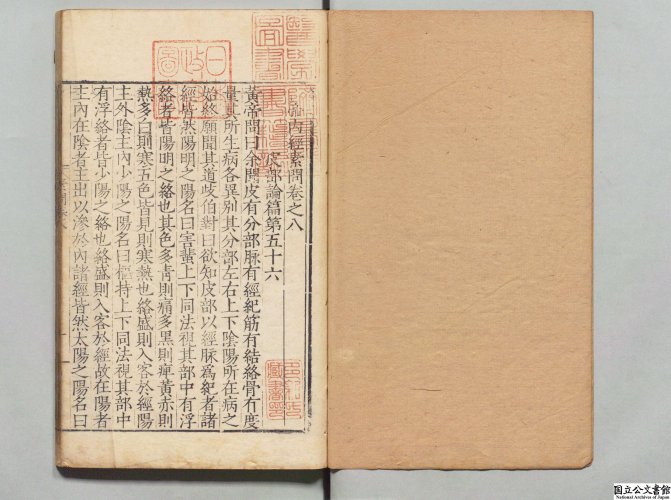 內經素問卷之八
皮部論篇第五十六
黃帝問曰余聞皮有分部脉有經紀筋有結絡骨有度
量其所生病各異別其分部左右上下陰陽所在病之
始終願聞其道歧伯對曰欲知皮部以經脉爲紀者諸
經皆然陽明之陽名曰害蜚上下同法視其部中有浮
絡者皆陽明之絡也其色多青則痛多黑則痺黃赤則
熱多白則寒五色皆見則寒熱也絡盛則入客於經陽
主外陰主內少陽之陽名曰樞持上下同法視其部中
有浮絡者皆少陽之絡也絡盛則入客於經故在陽者
主內在陰者主出以滲於內諸經皆然太陽之陽名曰
日
圖
國立公文書館
National Archives of Japan